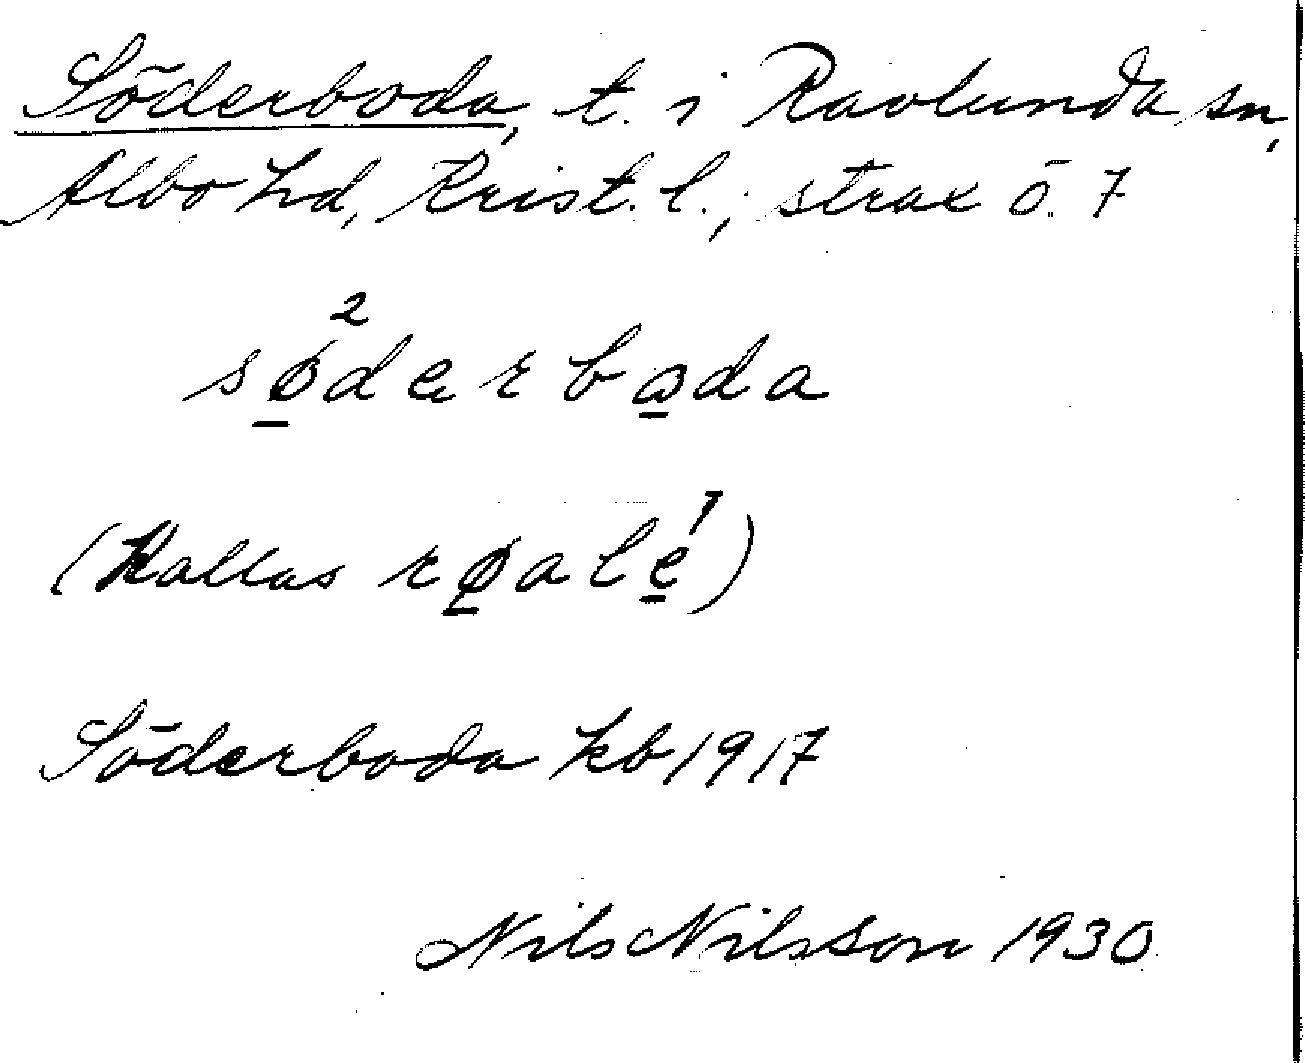 Söderboda, t. i Ravlunda sn,
Albo hd, Krist. l.; strax ö. 7
sø̱²derbo̱da
(Kallas rø̱ale̱¹)
Söderboda kb 1917
Nils Nilsson 1930